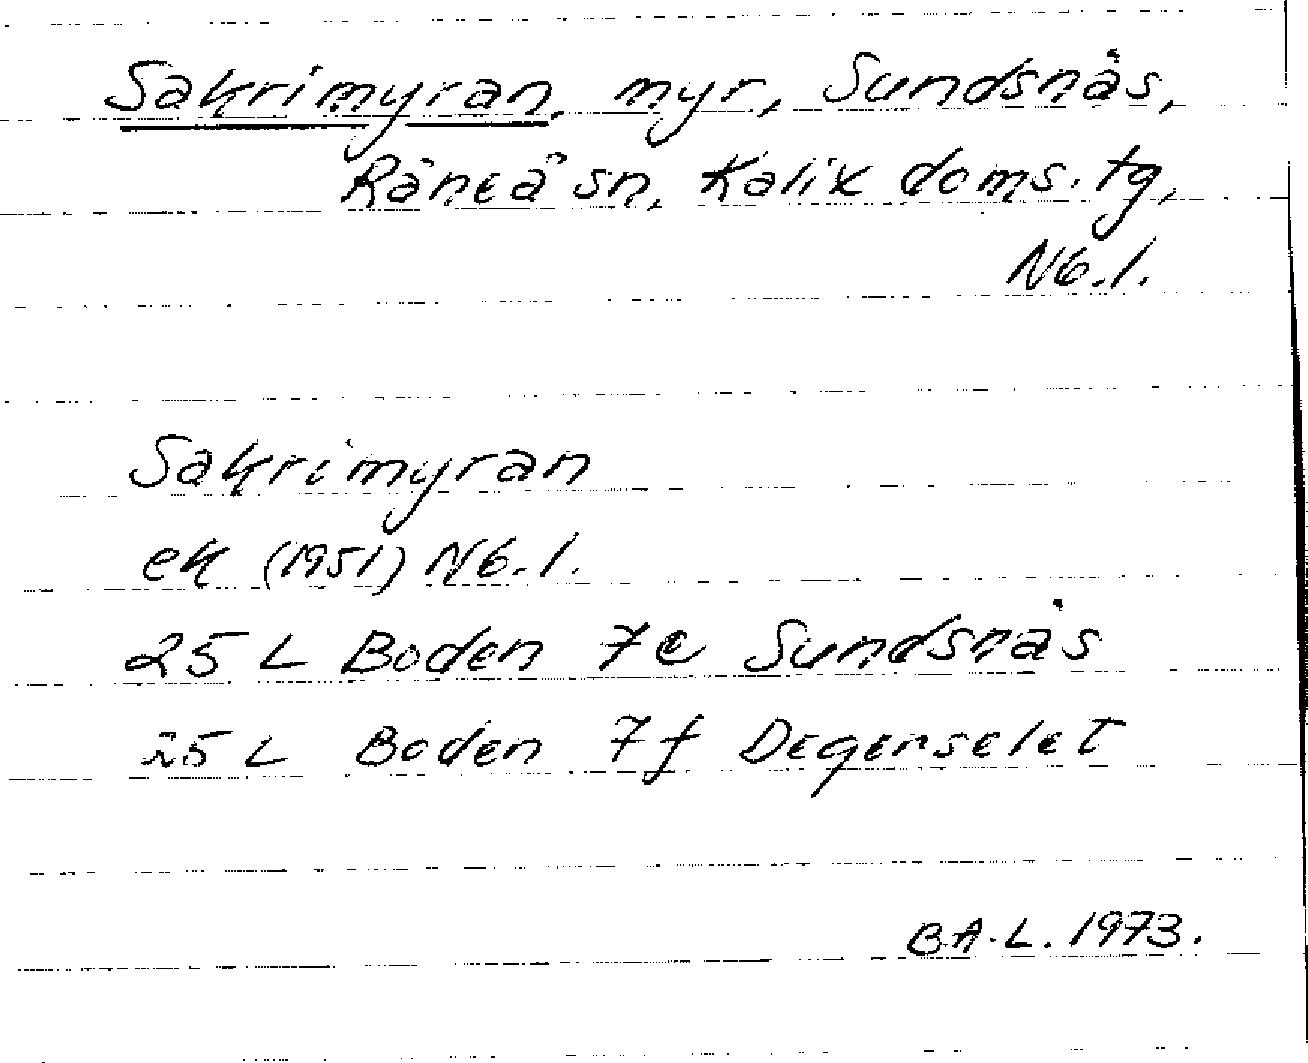 Sakrimyran, myr, Sundsnäs,
Råneå sn, Kalix doms. tg,
Nb.l.
Sakrimyran
ek (1951) Nb.l.
25 L Boden 7e Sundsnäs
25 L Boden 7f Degerselet
B.A.L. 1973.